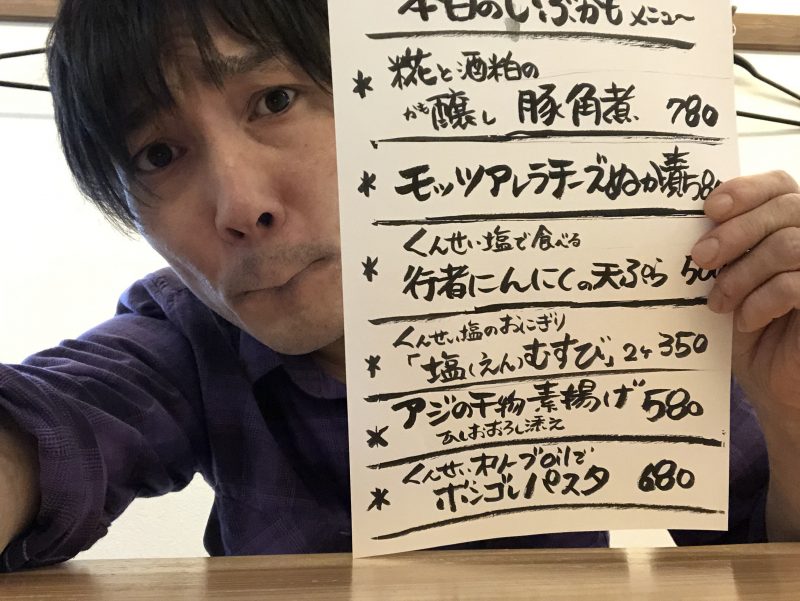 本日のいぶかもメニュー
* 糀と酒粕の
かも醸し 豚角煮 780
* モッツアレラチーズぬか漬 580
くんせい塩で食べる
* 行者にんにくの天ぷら 500
くんせい塩のおにぎり
* 「塩(えん)むすび」2ヶ 350
* アジの干物素揚げ 580
おろし添え
くんせいオリーブoilで
* ボンゴレパスタ 680